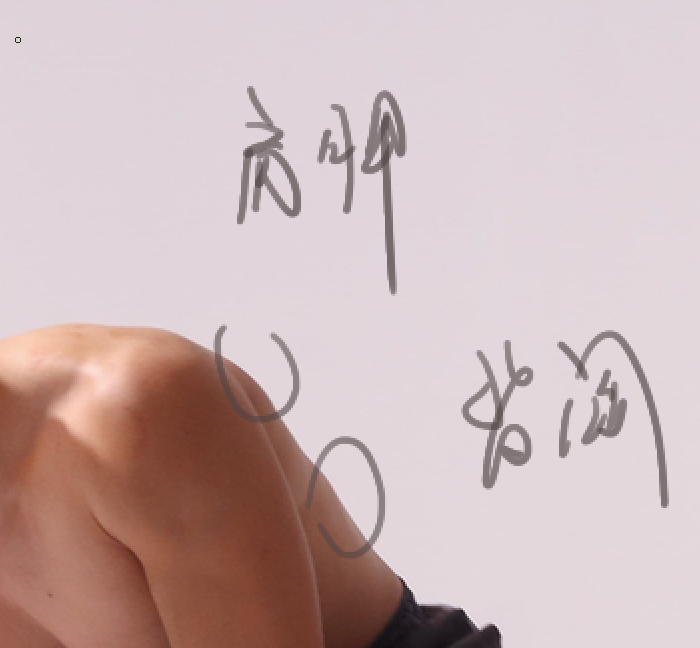 肩胛
背阔